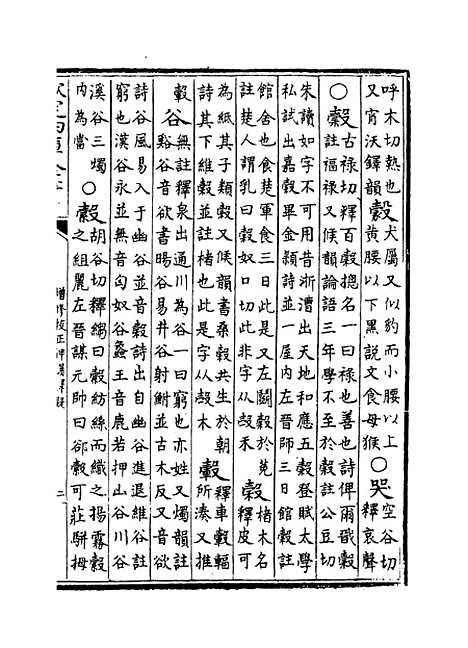 呼木切熱也又宵沃鐸韻 㺉 犬屬又似豹而小腰以上黄腰以下黒説文食母猴 ○哭 空谷切釋哀聲
○穀 古禄切釋百穀總名一曰禄也善也詩俾爾戩穀註福禄又候韻論語三年學不至於穀註公豆切
朱讀如字不可用昔浙漕出天地和應五穀登賦太學私試出嘉穀畢金潁詩並一屋内左晉師三日館穀註
館舍也食楚軍食三日此是又左鬭穀於菟註楚人謂乳曰穀奴口切此非字从殻禾 榖 楮木名釋皮可
為紙其子類穀又候韻書桑穀共生於朝詩其下維穀並註楮也此是字从殻木 轂 釋車轂輻所湊又推
轂 谷 無註釋泉出通川為谷一曰窮也亦姓又燭韻註谿谷音欲書暘谷易井谷射鮒並古木反又音欲
詩谷風易入于幽谷並音穀詩出自幽谷進退維谷註窮也漢谷永並無音匈奴谷蠡王音鹿若押山谷川谷
溪谷三燭内為當 ○縠 胡谷切釋縐曰縠紡絲而織之揚霧縠之組麗左晉謀元帥曰郤縠可莊駢拇
欽定四庫全書
增修校正押韻釋疑
二